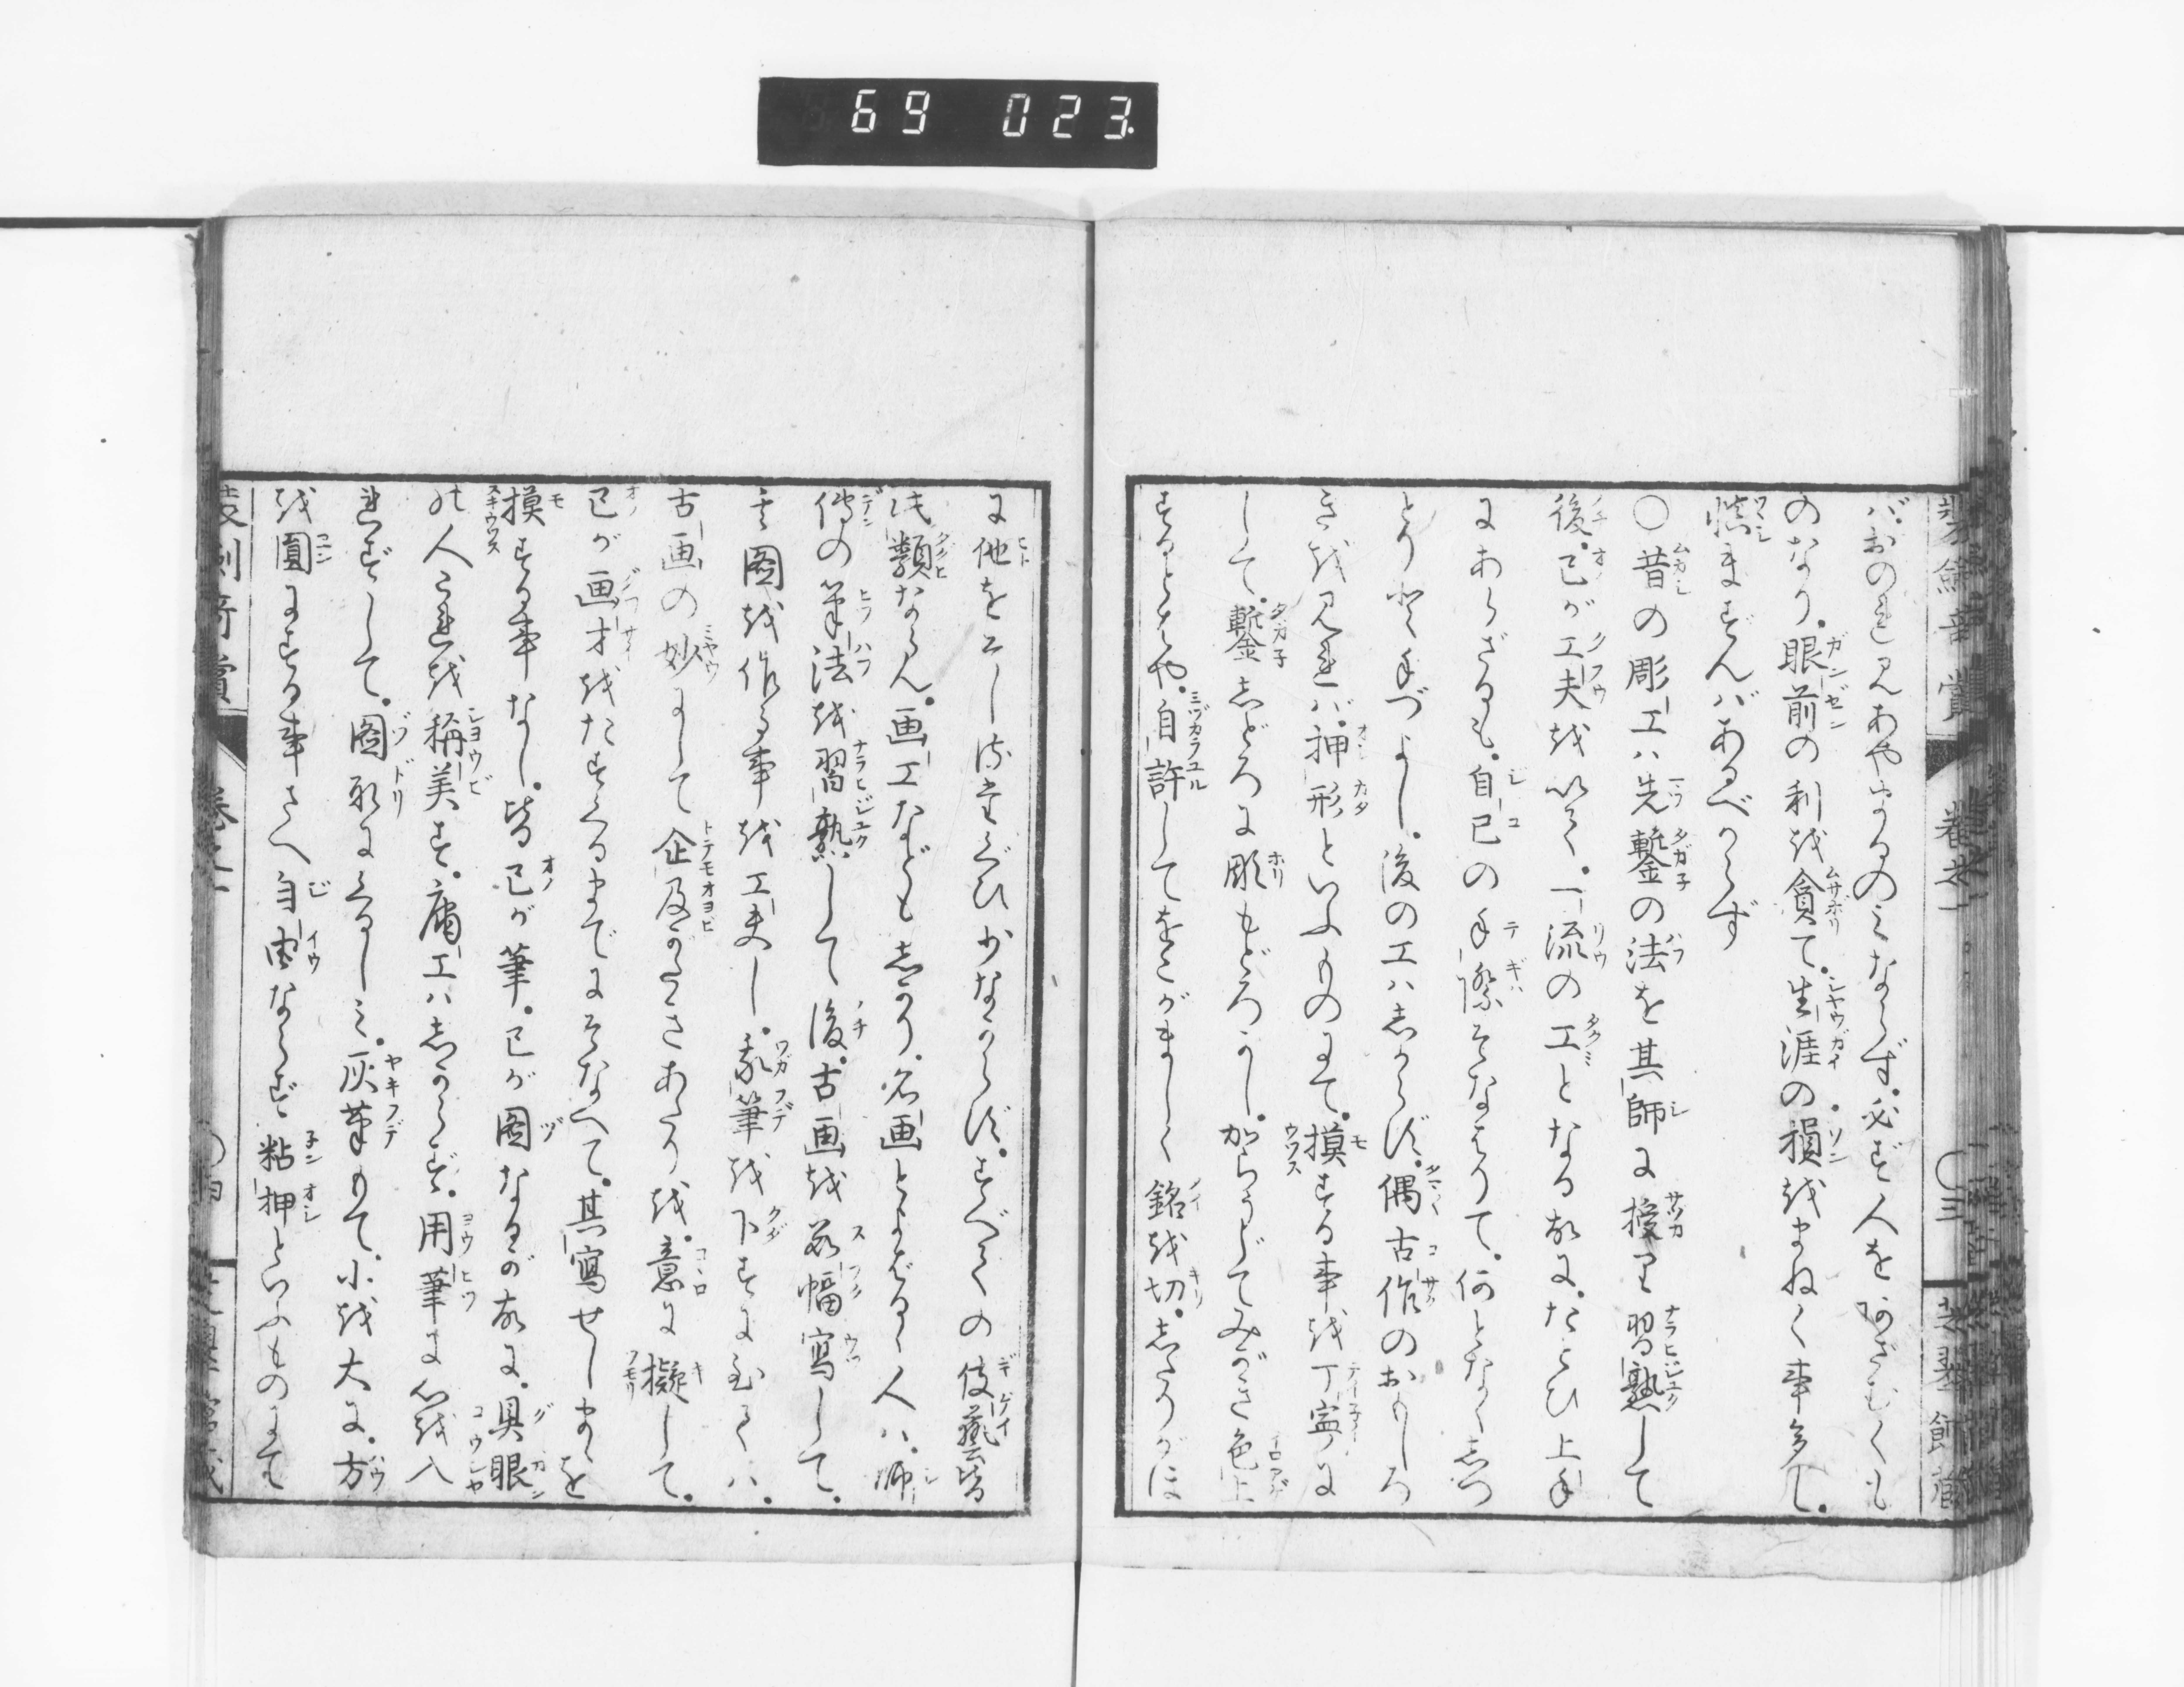 69 023
バおのれ見あやまるのミならず。必ず人をあざむくも
のなり。眼前の利を貪て。生涯の損をまねく事多し。
慎まずんバあるべからず
○昔の彫工ハ先鏨の法を其師に授里習熟して
後。己が工夫を以て。一流の工となる故に。たとひ上手
にあらざるも。自己の手際そなはりて。何となくしつ
とりと手づよし。後の工ハしからず。偶古作のおもしろ
きを見れバ。押形といふものにて。摸する事を丁寧に
して。鏨しどろに彫もどろかし。からうじてみがき色上
するとはや。自許してをこがましく銘を切。したりがほ
に他をそしるたぐひ少なからず。すべての伎藝皆
此類ならん。画工なども志かり。名画とよばるゝ人ハ。師
傳の筆法を習熟して後。古画を数幅寫して。
其圖を作る事を工夫し。我筆を下すに至てハ。
古画の妙にして企及がたきあたりを。意に擬して。
己が画才をたすくるまでにそなへて。其寫せしまゝを
摸する事なし。皆己が筆。己が圖なるが故に。具眼
の人これを稱美す。庸工ハ志からず。用筆に心を入
れずして。圖取にくるしミ。灰筆もて。小を大に。方
を圓にする事さへ自由ならず粘押といふものにて